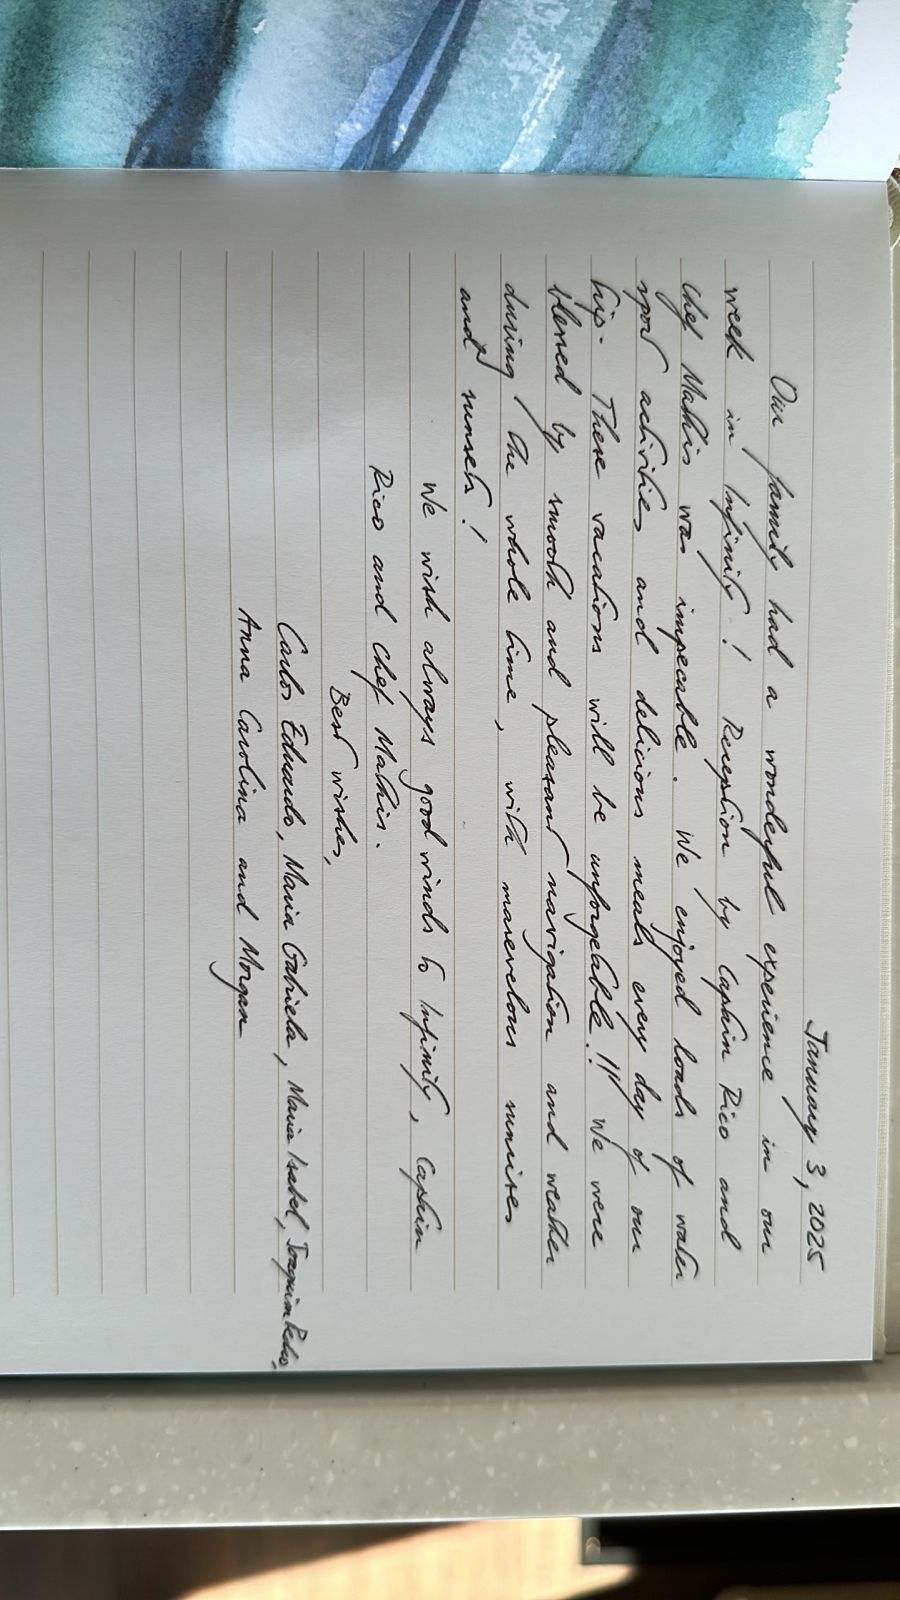 January 3, 2025
Our family had a wonderful experience in our
week in Infinity! Reception by Captain Rico and
chef Mathis was impecable. We enjoyed loads of water
sport activities and delicious meals every day of our
trip. These vacations will be unforgetable!! We were
blessed by smooth and pleasant navigation and weather
during the whole time, with marevelous sunrises
and sunsets!
We wish always good winds to Infinity, Captain
Rico and Chef Mathis.
Best wishes,
Carlos Eduardo, Maria Gabriela, Maria Isabel, Joaquim Pedro,
Anna Carolina and Morgan